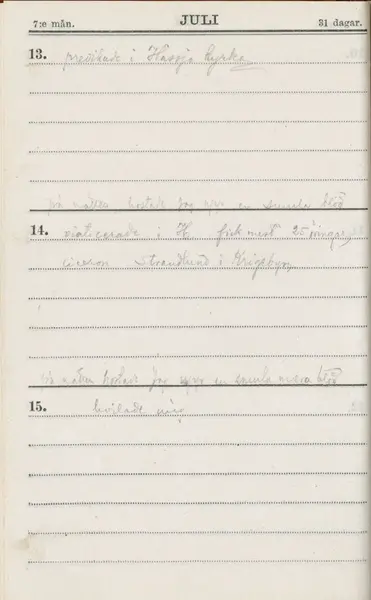 7:e mån. JULI 31 dagar.
13. predikade i Hässjö kyrka
på natten hostade jag upp en samla blod
14. viaticerade i H fick mest 25 öringar,
ciceron Strandlund i
på natten hostade jag upp en samla blod
15. hvilade mig